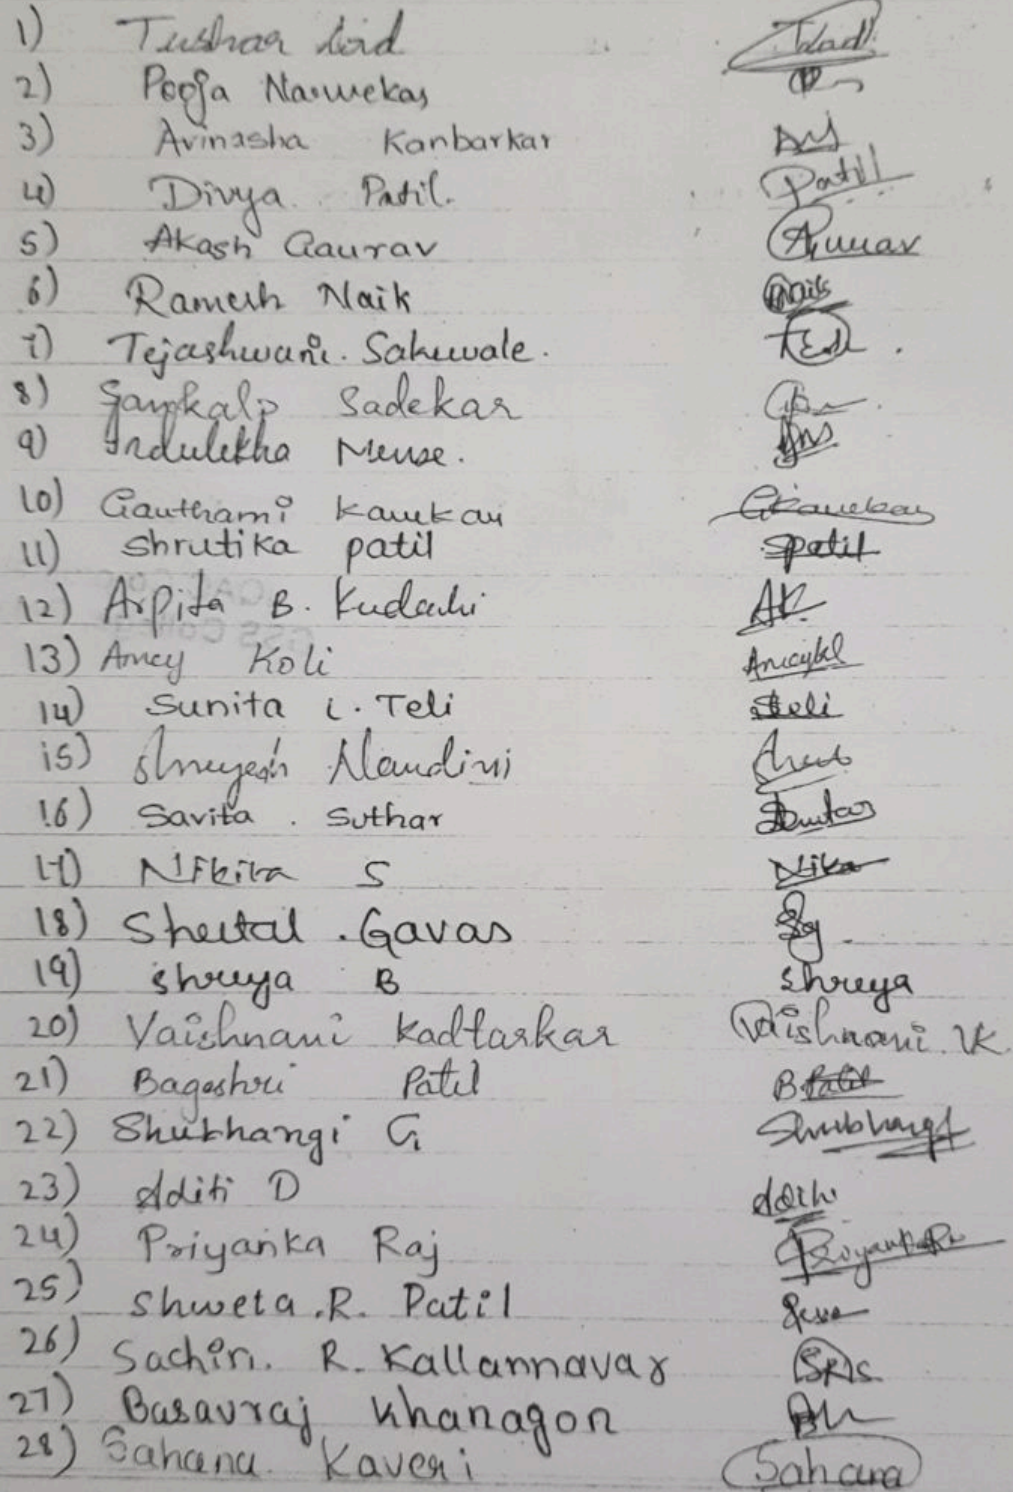 1) Tushar Lad Tlad
2) Pooja Narvekar
3) Avinasha Kanbarkar
4) Divya Patil. Patil
5) Akash Gaurav
6) Ramesh Naik Naik
7) Tejashwani. Sakuwale.
8) Sankalp Sadekar
9) Indulekha Mense.
10) Gauthami Kamkar
11) Shrutika patil Spatil
12) Arpita B. Kudachi AK
13) Amey Koli
14) Sunita L. Teli Steli
15) Shreyash Nandini
16) Savita. Suthar
17) Nikita S Nika
18) Sheetal. Gavas Sg
19) Shreya B Shreya
20) Vaishnavi Kadtarkar Vaishnavi. VK
21) Bageshri Patil B Patil
22) Shubhangi G Shubhangi
23) Aditi D
24) Priyanka Raj
25) Shweta. R. Patil
26) Sachin. R. Kallannavar
27) Basavraj Khanagon
28) Sahana Kaveri Sahana